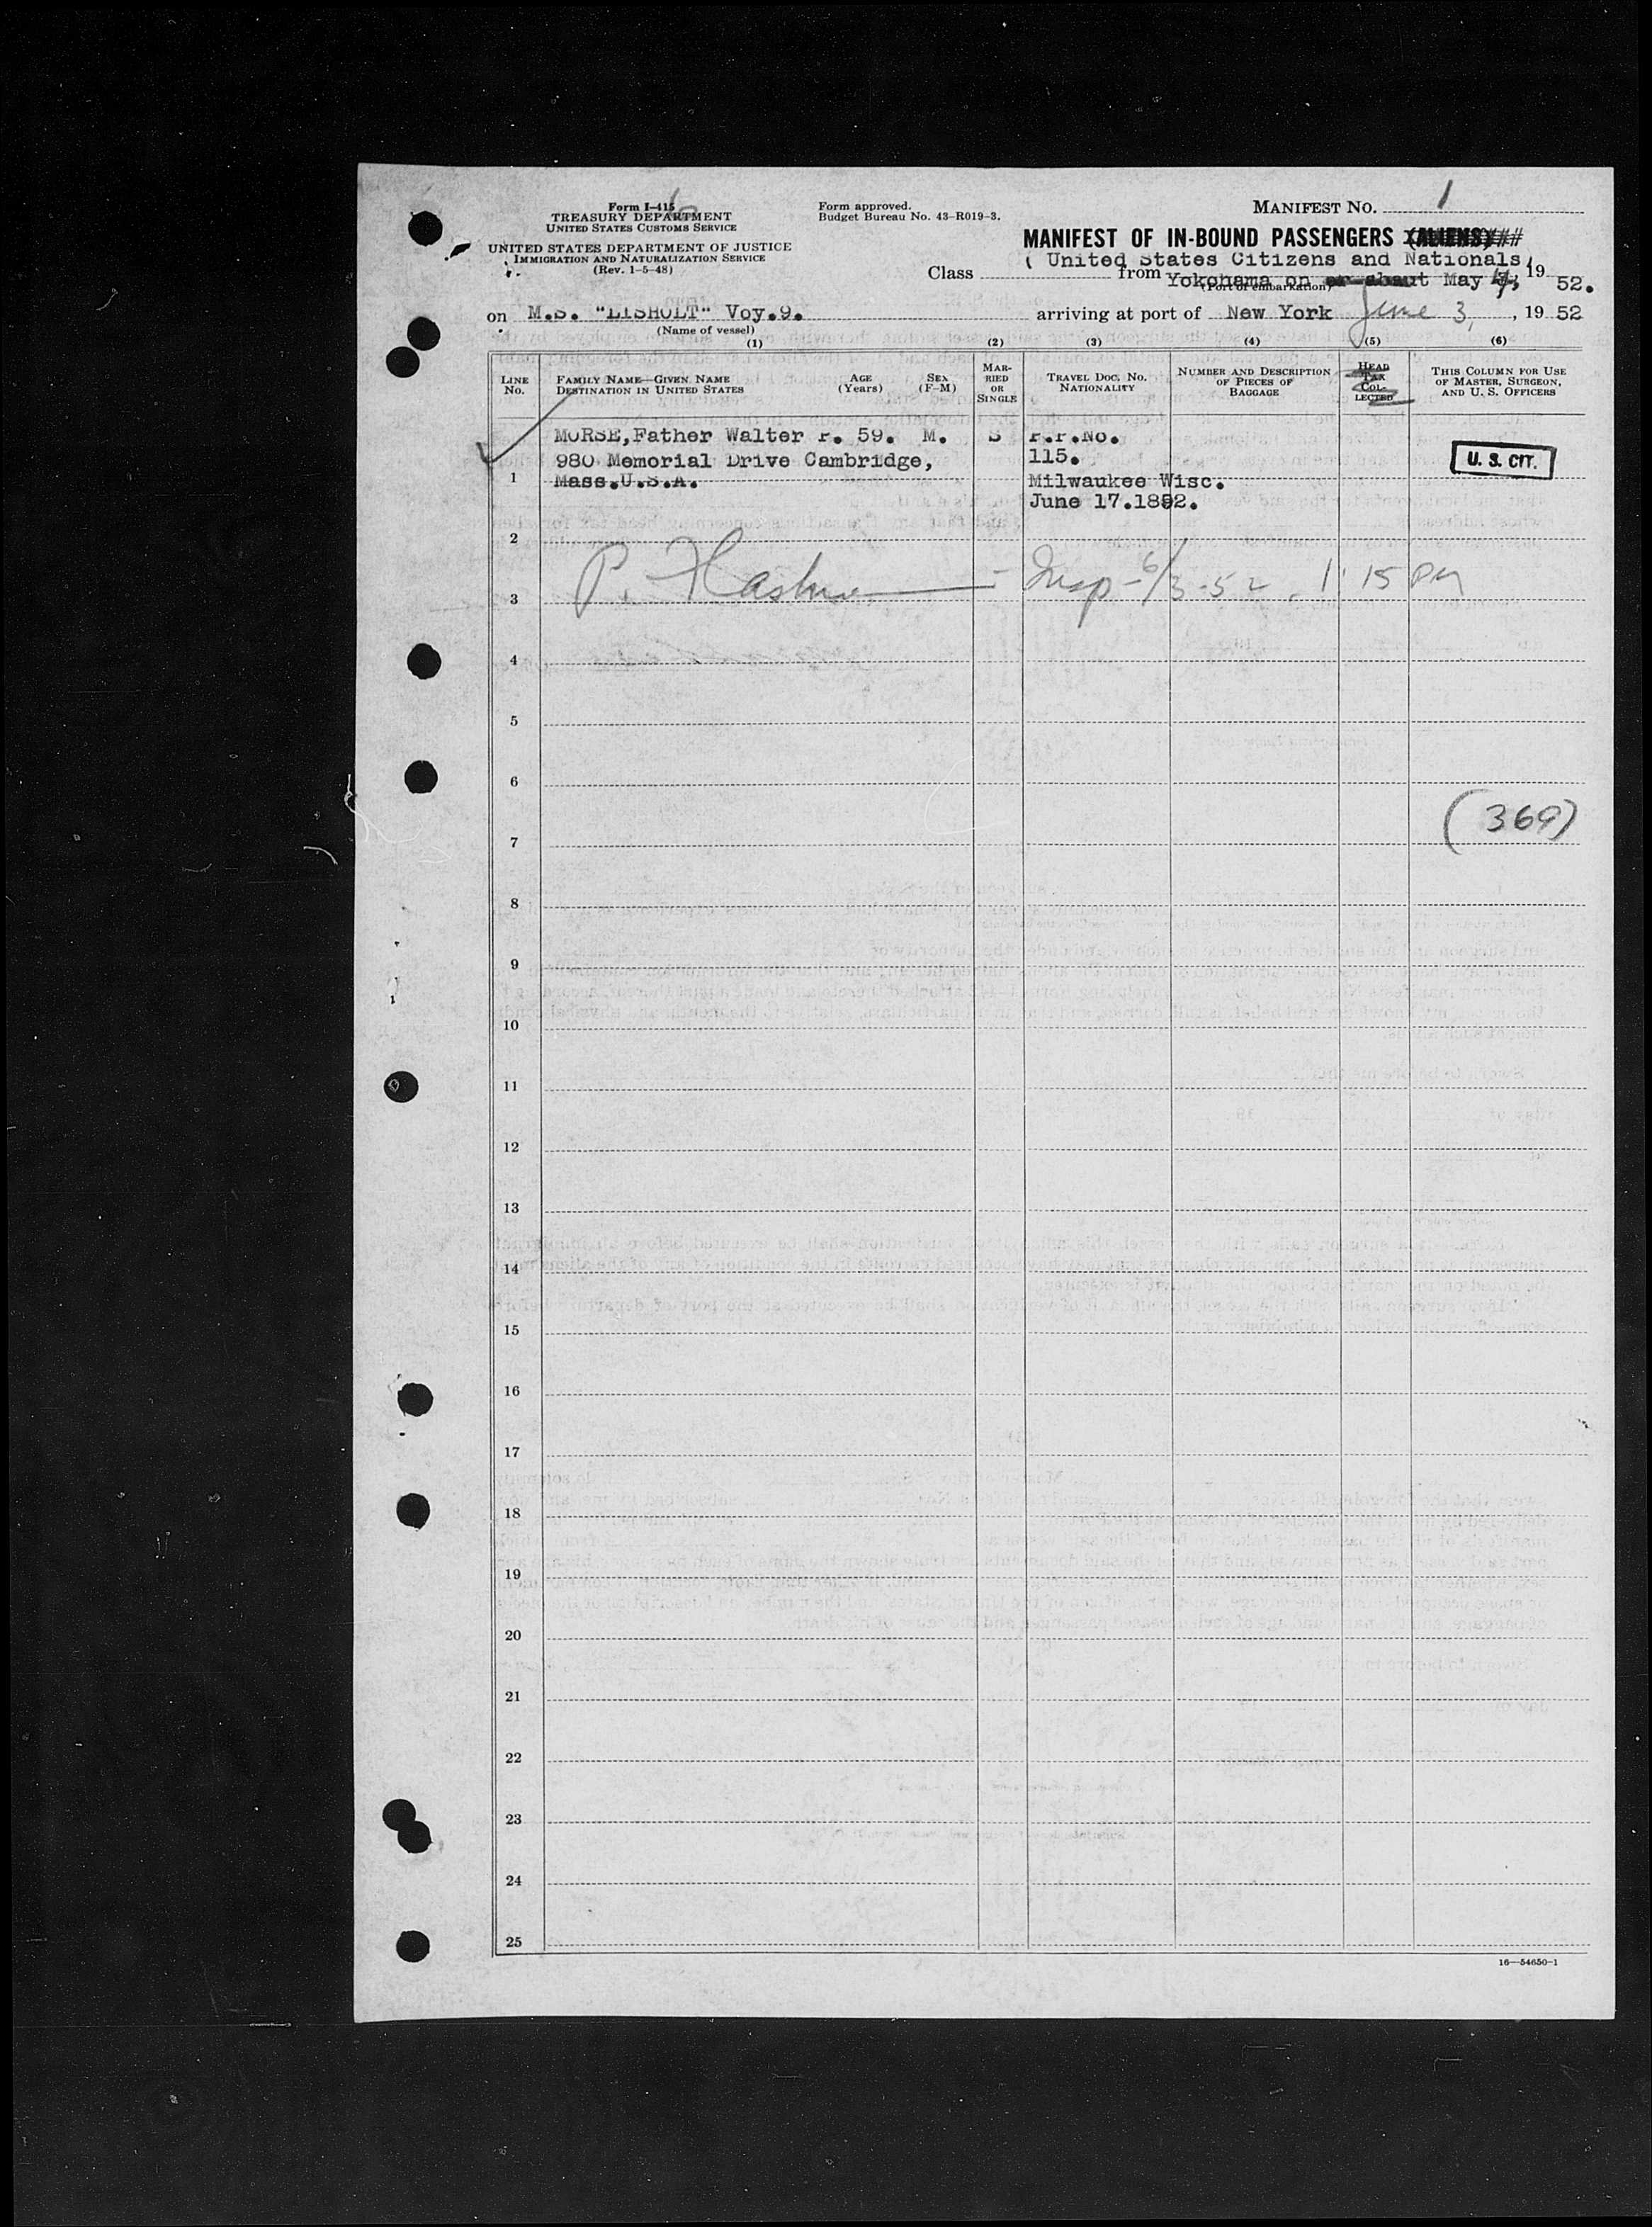 Form I-415
TREASURY DEPARTMENT
UNITED STATES CUSTOMS SERVICE
UNITED STATES DEPARTMENT OF JUSTICE
IMMIGRATION AND NATURALIZATION SERVICE
(Rev. 1-5-48)
Form approved.
Budget Bureau No. 43-R019-3.
MANIFEST NO. 1
MANIFEST OF IN-BOUND PASSENGERS (ALIENS)
( United States Citizens and Nationals)
Class from Yokohama on or about May 7, 1952.
(Port of embarkation)
on M.S. "LISHOLT" Voy.9. arriving at port of New York June 3, 1952
(Name of vessel)
(1) (2) (3) (4) (5) (6)
LINE NO.
FAMILY NAME—GIVEN NAME
DESTINATION IN UNITED STATES
AGE (Years)
SEX (F-M)
MARRIED OR SINGLE
TRAVEL DOC. NO.
NATIONALITY
NUMBER AND DESCRIPTION OF PIECES OF BAGGAGE
HEAD TAX COLLECTED
THIS COLUMN FOR USE OF MASTER, SURGEON, AND U. S. OFFICERS
MORSE,Father Walter P. 59. M. S P.P.No.
980 Memorial Drive Cambridge, 115.
1 Mass.U.S.A. Milwaukee Wisc.
June 17.1892.
U. S. CIT.
2
3 P. Insp - 6/3-52. 1:15 PM
4
5
6
(369)
7
8
9
10
11
12
13
14
15
16
17
18
19
20
21
22
23
24
25
16—54650-1